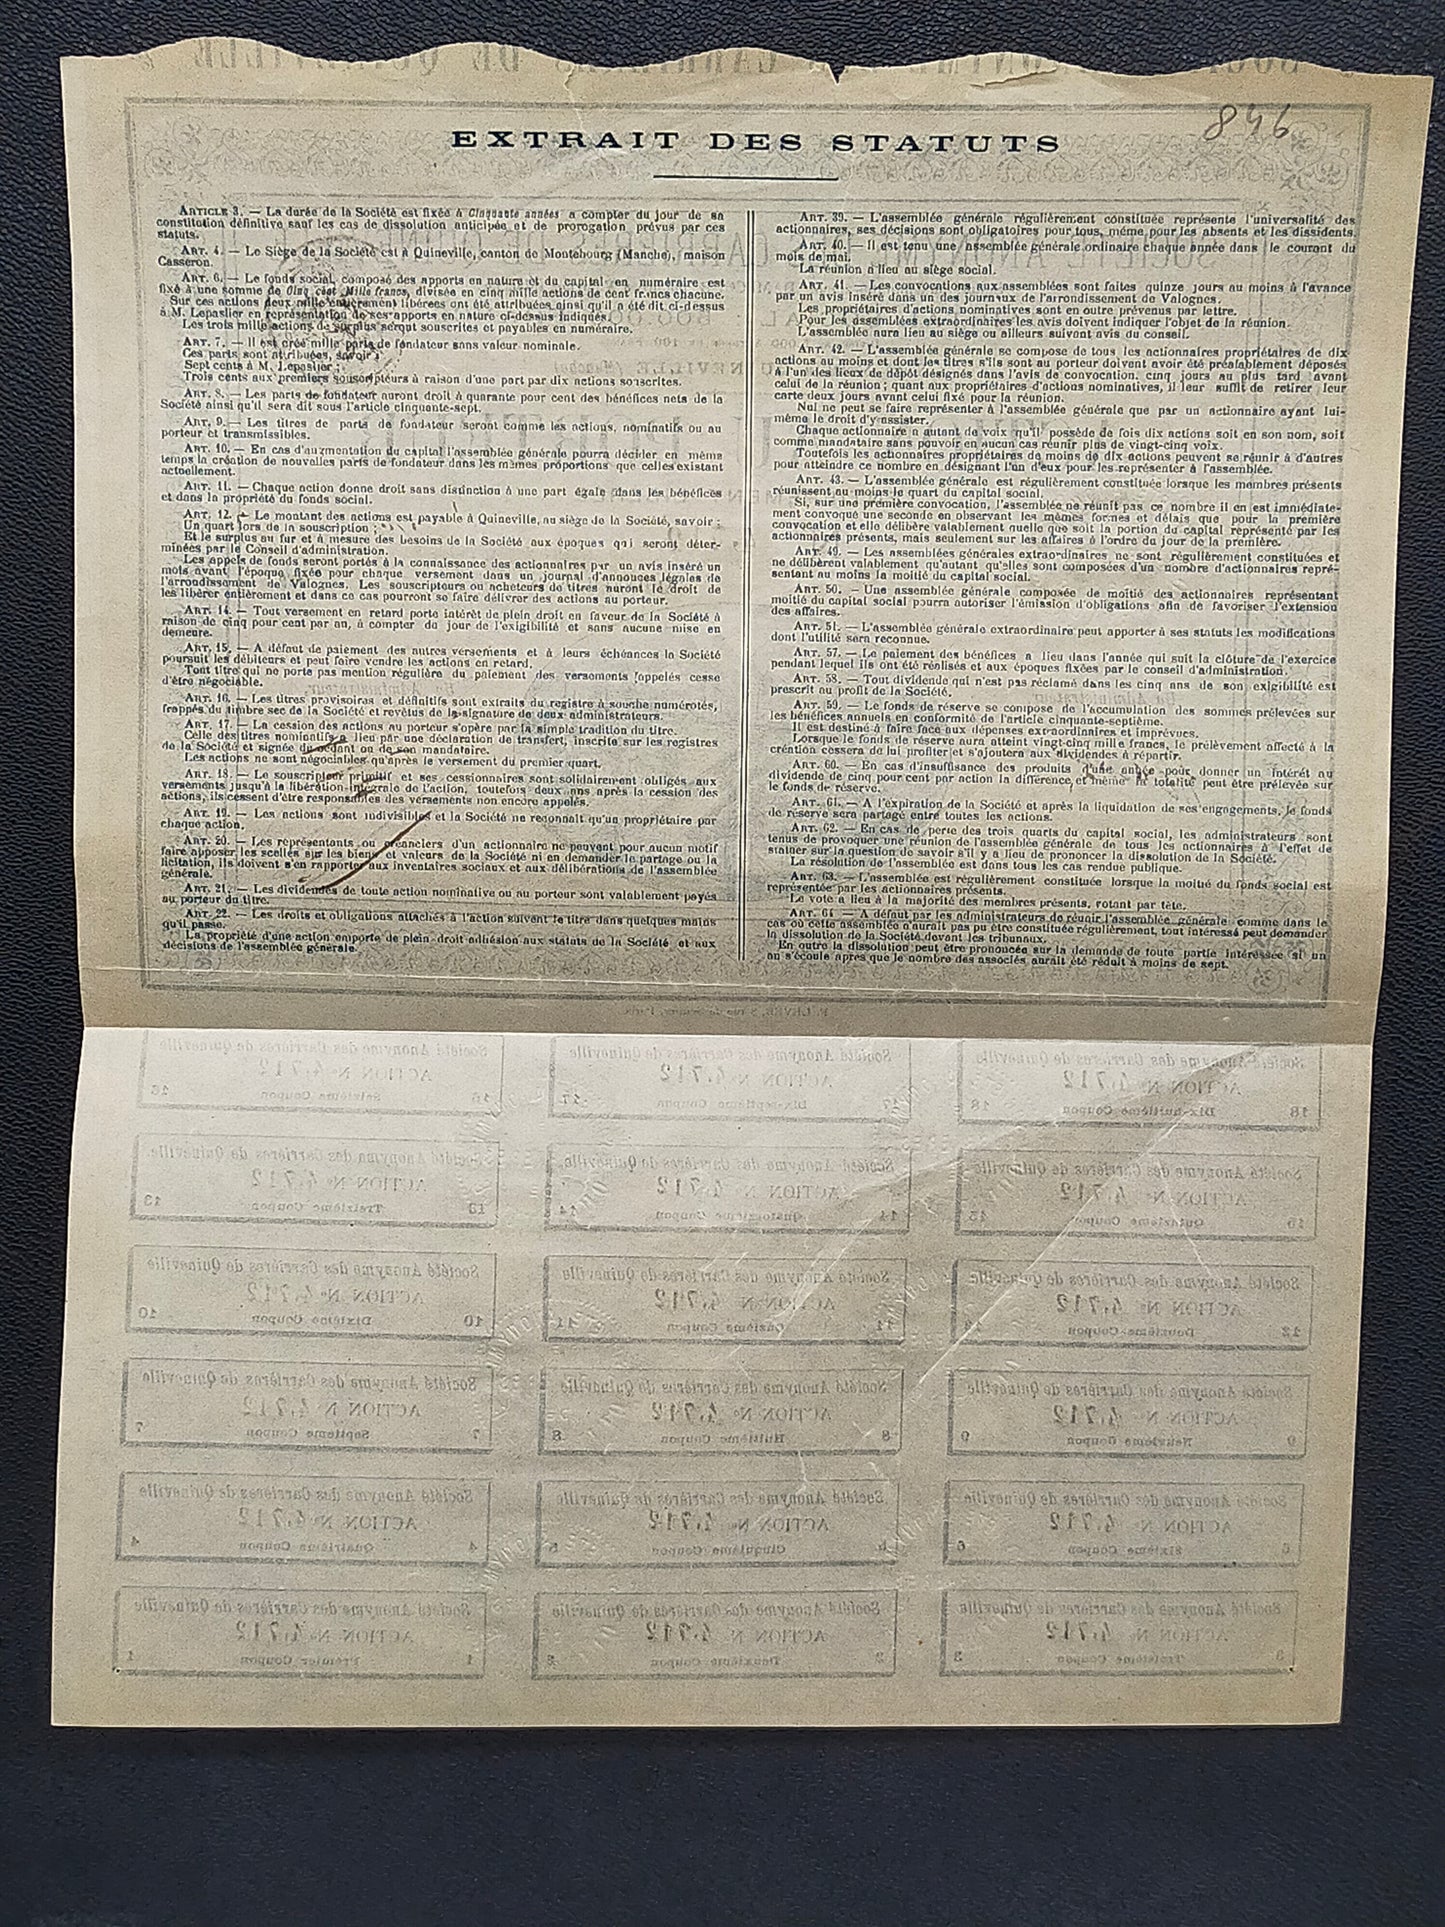 846
EXTRAIT DES STATUTS
ARTICLE 3. — La durée de la Société est fixée à Cinquante années a compter du jour de sa
constitution définitive sauf les cas de dissolution anticipée et de prorogation prévus par ces
statuts.
ART. 4. — Le Siège de la Société est à Quineville, canton de Montebourg (Manche), maison
Casseron.
ART. 6. — Le fonds social, composé des apports en nature et du capital en numéraire est
fixé à une somme de Cinq cent Mille francs, divisée en cinq mille actions de cent francs chacune.
Sur ces actions deux mille entièrement libérées ont été attribuées ainsi qu'il a été dit ci-dessus
à M. Lepaslier en représentation de ses apports en nature ci-dessus indiqués.
Les trois mille actions de surplus seront souscrites et payables en numéraire.
ART. 7. — Il est créé mille parts de fondateur sans valeur nominale.
Ces parts sont attribuées, savoir :
Sept cents à M. Lepaslier ;
Trois cents aux premiers souscripteurs à raison d'une part par dix actions souscrites.
ART. 8. — Les parts de fondateur auront droit à quarante pour cent des bénéfices nets de la
Société ainsi qu'il sera dit sous l'article cinquante-sept.
ART. 9. — Les titres de parts de fondateur seront comme les actions, nominatifs ou au
porteur et transmissibles.
ART. 10. — En cas d'augmentation du capital l'assemblée générale pourra décider en même
temps la création de nouvelles parts de fondateur dans les mêmes proportions que celles existant
actuellement.
ART. 11. — Chaque action donne droit sans distinction à une part égale dans les bénéfices
et dans la propriété du fonds social.
ART. 12. — Le montant des actions est payable à Quineville, au siège de la Société, savoir :
Un quart lors de la souscription ;
Et le surplus au fur et à mesure des besoins de la Société aux époques qui seront déter-
minées par le Conseil d'administration.
Les appels de fonds seront portés à la connaissance des actionnaires par un avis inséré un
mois avant l'époque fixée pour chaque versement dans un journal d'annonces légales de
l'arroudissement de Valognes. Les souscripteurs ou acheteurs de titres auront le droit de
les libérer entièrement et dans ce cas pourront se faire délivrer des actions au porteur.
ART. 14. — Tout versement en retard porte intérêt de plein droit en faveur de la Société à
raison de cinq pour cent par an, à compter du jour de l'exigibilité et sans aucune mise en
demeure.
ART. 15. — A défaut de paiement des autres versements et à leurs échéances la Société
poursuit les débiteurs et peut faire vendre les actions en retard.
Tout titre qui ne porte pas mention régulière du paiement des versements appelés cesse
d'être négociable.
ART. 16. — Les titres provisoires et définitifs sont extraits du registre à souche numérotés,
frappés du timbre sec de la Société et revêtus de la signature de deux administrateurs.
ART. 17. — La cession des actions au porteur s'opère par la simple tradition du titre.
Celle des titres nominatifs a lieu par une déclaration de transfert, inscrite sur les registres
de la Société et signée du cédant ou de son mandataire.
Les actions ne sont négociables qu'après le versement du premier quart.
ART. 18. — Le souscripteur primitif et ses cessionnaires sont solidairement obligés aux
versements jusqu'à la libération intégrale de l'action, toutefois deux ans après la cession des
actions, ils cessent d'être responsables des versements non encore appelés.
ART. 19. — Les actions sont indivisibles et la Société ne reconnait qu'un propriétaire par
chaque action.
ART. 20. — Les représentants ou créanciers d'un actionnaire ne peuvent pour aucun motif
faire apposer les scellés sur les biens et valeurs de la Société ni en demander le partage ou la
licitation, ils doivent s'en rapporter aux inventaires sociaux et aux délibérations de l'assemblée
générale.
ART. 21. — Les dividendes de toute action nominative ou au porteur sont valablement payés
au porteur du titre.
ART. 22. — Les droits et obligations attachés à l'action suivent le titre dans quelques mains
qu'il passe.
La propriété d'une action emporte de plein droit adhésion aux statuts de la Société et aux
décisions de l'assemblée générale.
ART. 39. — L'assemblée générale régulièrement constituée représente l'universalité des
actionnaires, ses décisions sont obligatoires pour tous, même pour les absents et les dissidents.
ART. 40. — Il est tenu une assemblée générale ordinaire chaque année dans le courant du
mois de mai.
La réunion a lieu au siège social.
ART. 41. — Les convocations aux assemblées sont faites quinze jours au moins à l'avance
par un avis inséré dans un des journaux de l'arrondissement de Valognes.
Les propriétaires d'actions nominatives sont en outre prévenus par lettre.
Pour les assemblées extraordinaires les avis doivent indiquer l'objet de la réunion.
L'assemblée aura lieu au siège ou ailleurs suivant avis du conseil.
ART. 42. — L'assemblée générale se compose de tous les actionnaires propriétaires de dix
actions au moins et dont les titres s'ils sont au porteur doivent avoir été préalablement déposés
à l'un des lieux de dépôt désignés dans l'avis de convocation, cinq jours au plus tard avant
celui de la réunion ; quant aux propriétaires d'actions nominatives, il leur suffit de retirer leur
carte deux jours avant celui fixé pour la réunion.
Nul ne peut se faire représenter à l'assemblée générale que par un actionnaire ayant lui-
même le droit d'y assister.
Chaque actionnaire a autant de voix qu'il possède de fois dix actions soit en son nom, soit
comme mandataire sans pouvoir en aucun cas réunir plus de vingt-cinq voix.
Toutefois les actionnaires propriétaires de moins de dix actions peuvent se réunir à d'autres
pour atteindre ce nombre en désignant l'un d'eux pour les représenter à l'assemblée.
ART. 43. — L'assemblée générale est régulièrement constituée lorsque les membres présents
réunissent au moins le quart du capital social.
Si, sur une première convocation, l'assemblée ne réunit pas ce nombre il en est immédiate-
ment convoqué une seconde en observant les mêmes formes et délais que pour la première
convocation et elle délibère valablement quelle que soit la portion du capital représenté par les
actionnaires présents, mais seulement sur les affaires à l'ordre du jour de la première.
ART. 49. — Les assemblées générales extraordinaires ne sont régulièrement constituées et
ne délibèrent valablement qu'autant qu'elles sont composées d'un nombre d'actionnaires repré-
sentant au moins la moitié du capital social.
ART. 50. — Une assemblée générale composée de moitié des actionnaires représentant
moitié du capital social pourra autoriser l'émission d'obligations afin de favoriser l'extension
des affaires.
ART. 51. — L'assemblée générale extraordinaire peut apporter à ses statuts les modifications
dont l'utilité sera reconnue.
ART. 57. — Le paiement des bénéfices a lieu dans l'année qui suit la clôture de l'exercice
pendant lequel ils ont été réalisés et aux époques fixées par le conseil d'administration.
ART. 58. — Tout dividende qui n'est pas réclamé dans les cinq ans de son exigibilité est
prescrit au profit de la Société.
ART. 59. — Le fonds de réserve se compose de l'accumulation des sommes prélevées sur
les bénéfices annuels en conformité de l'article cinquante-septième.
Il est destiné à faire face aux dépenses extraordinaires et imprévues.
Lorsque le fonds de réserve aura atteint vingt-cinq mille francs, le prélèvement affecté à la
création cessera de lui profiter et s'ajoutera aux dividendes à répartir.
ART. 60. — En cas d'insuffisance des produits d'une année pour donner un intérêt au
dividende de cinq pour cent par action la différence, et même la totalité peut être prélevée sur
le fonds de réserve.
ART. 61. — A l'expiration de la Société et après la liquidation de ses engagements, le fonds
de réserve sera partagé entre toutes les actions.
ART. 62. — En cas de perte des trois quarts du capital social, les administrateurs sont
tenus de provoquer une réunion de l'assemblée générale de tous les actionnaires à l'effet de
statuer sur la question de savoir s'il y a lieu de prononcer la dissolution de la Société.
La résolution de l'assemblée est dans tous les cas rendue publique.
ART. 63. — L'assemblée est régulièrement constituée lorsque la moitié du fonds social est
représentée par les actionnaires présents.
Le vote a lieu à la majorité des membres présents, votant par tête.
ART. 64 — A défaut par les administrateurs de réunir l'assemblée générale comme dans le
cas où cette assemblée n'aurait pas pu être constituée régulièrement, tout intéressé peut demander
la dissolution de la Société devant les tribunaux.
En outre la dissolution peut être prononcée sur la demande de toute partie intéressée si un
an s'écoule après que le nombre des associés aurait été réduit à moins de sept.